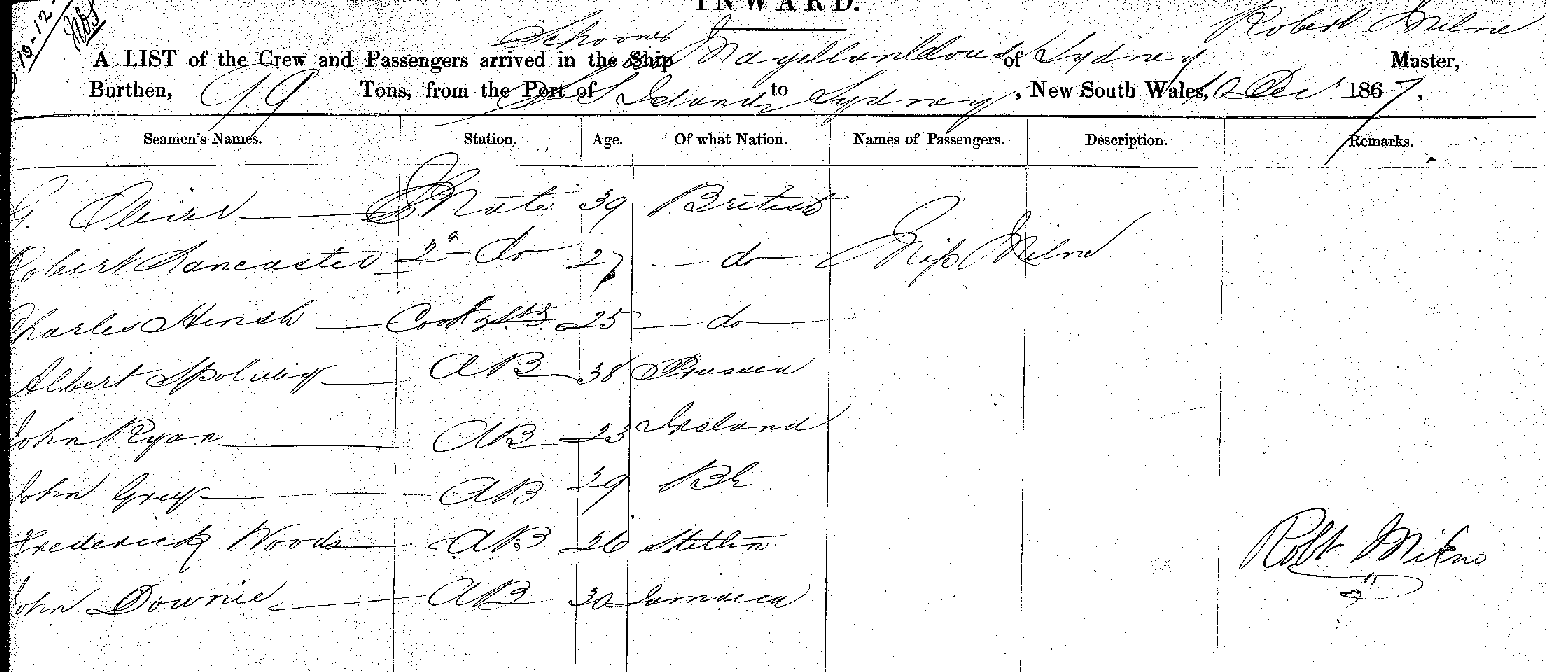 19-12-
INWARD.
Schooner Robert Milne
A LIST of the Crew and Passengers arrived in the Ship Magellan Cloud of Sydney Master,
Burthen, 99 Tons, from the Port of S S Islands to Sydney, New South Wales, Dec 1867.
Seamen's Names. Station. Age. Of what Nation. Names of Passengers. Description. Remarks.
G. Mate 39 British
Robert Lancaster 2nd do 27 do Miss Milne
Charles Hersh Cook & Std 25 do
Albert AB 38 Prussia
John Ryan AB 23 Ireland
John Grey AB 29 Bh
Frederick Woods AB 26 Stettin
John Downie AB 30 Jamaica
Robt Milne